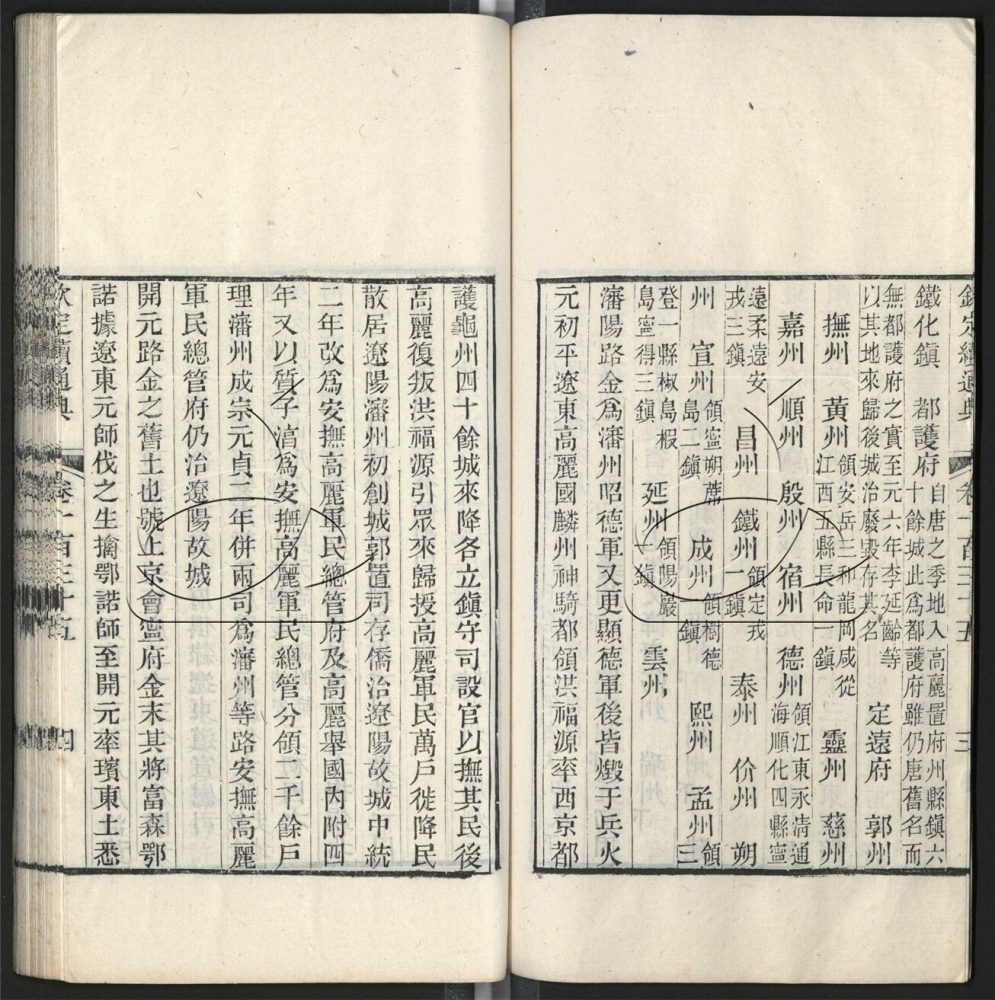 欽定續通典 卷一百三十五 三
鐵化鎮 都護府自唐之季地入高麗置府州縣鎮六十餘城此為都護府雖仍唐舊名而
無都護府之實至元六年李延齡等以其地來歸後城治廢毀存其名 定遠府 郭州
撫州 黃州領安岳三和龍岡咸從江西五縣長命一鎮 靈州 慈州
嘉州 順州 殷州 宿州 德州領江東永清通海順化四縣寧
遠柔遠安戎三鎮 昌州 鐵州領定戎一鎮 泰州 价州 朔
州 宣州領寧朔蓆島二鎮 成州領樹德鎮 熙州 孟州領三
登一縣椒島椵島寧得三鎮 延州領陽巖一鎮 雲州
瀋陽路金為瀋州昭德軍又更顯德軍後皆燬于兵火
元初平遼東高麗國麟州神騎都領洪福源率西京都
護龜州四十餘城來降各立鎮守司設官以撫其民後
高麗復叛洪福源引眾來歸授高麗軍民萬戶徙降民
散居遼陽瀋州初創城郭置司存僑治遼陽故城中統
二年改為安撫高麗軍民總管府及高麗舉國內附四
年又以質子淯為安撫高麗軍民總管分領二千餘戶
理瀋州成宗元貞二年併兩司為瀋州等路安撫高麗
軍民總管府仍治遼陽故城
開元路金之舊土也號上京會寧府金末其將富森鄂
諾據遼東元師伐之生擒鄂諾師至開元率瓆東土悉
欽定續通典 卷一百三十五 四